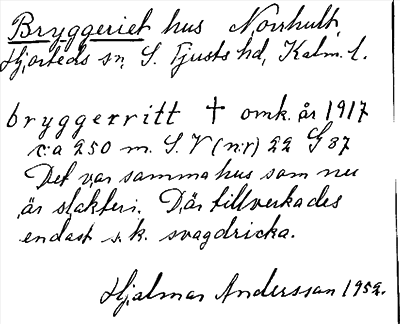 Bryggeriet hus Norrhult,
Hjorteds sn, S. Tjusts hd, Kalm. l.
bryggerritt † omk. år 1917
c:a 250 m. S. V (n:r) 22 G 87
Det var samma hus som nu
är slakteri. Där tillverkades
endast s.k. svagdricka.
Hjalmar Andersson 1952.